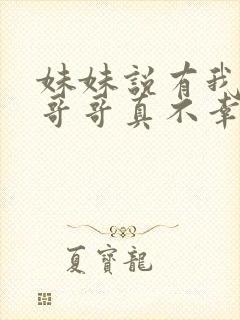 妹妹說有我
哥哥真不幸
夏寶龍